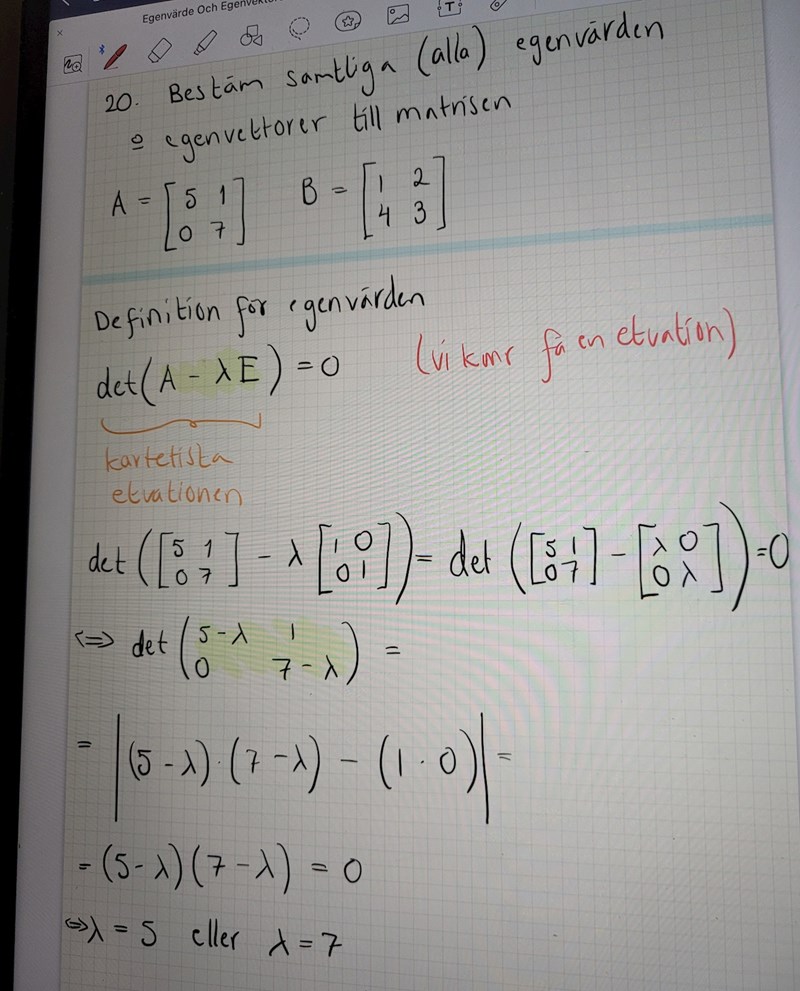 Egenvärde Och Egenvektor
20. Bestäm samtliga (alla) egenvärden
o egenvektorer till matrisen
A = [5 1
0 7] B = [1 2
4 3]
Definition för egenvärden
det(A - λE) = 0 (vi kmr få en ekvation)
karketista
ekvationen
det([5 1
0 7] - λ[1 0
0 1]) = det([5 1
0 7] - [λ 0
0 λ]) = 0
⇔ det(5-λ 1
0 7-λ) =
= |(5-λ)·(7-λ) - (1·0)| =
= (5-λ)(7-λ) = 0
⇔ λ = 5 eller λ = 7